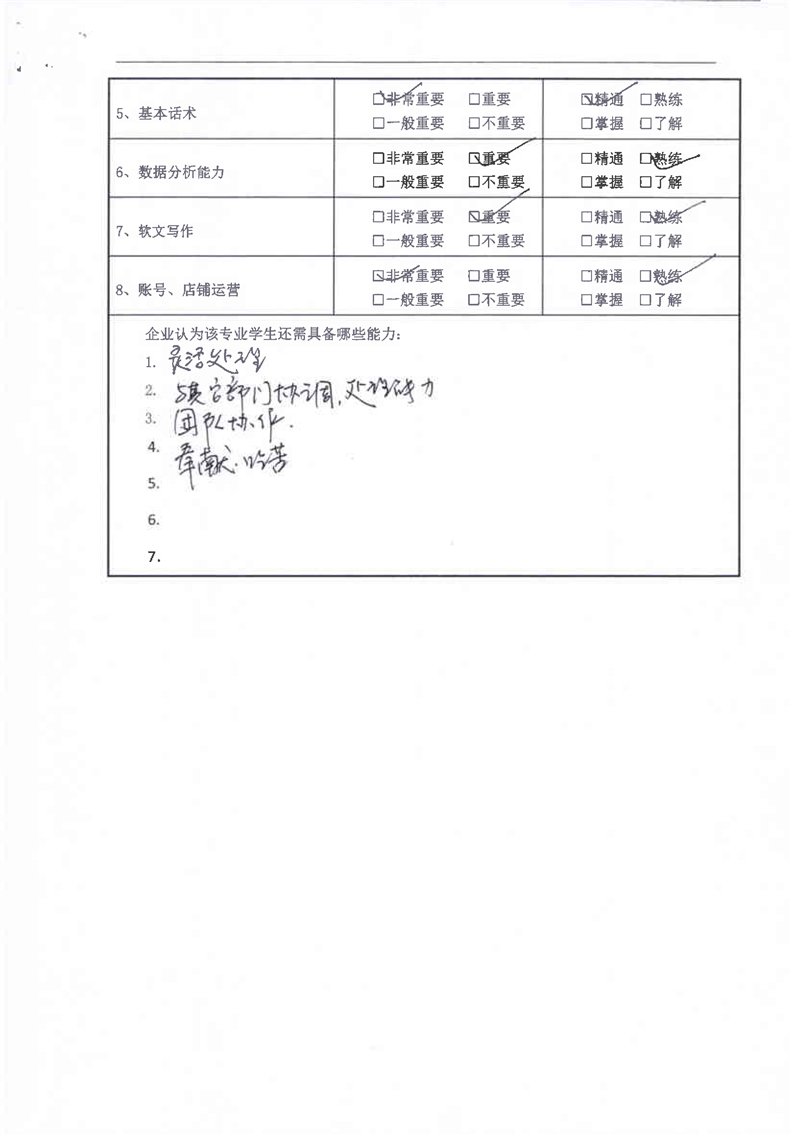 5、基本话术 ☑非常重要 □重要 ☑精通 □熟练
□一般重要 □不重要 □掌握 □了解
6、数据分析能力 □非常重要 ☑重要 □精通 ☑熟练
□一般重要 □不重要 □掌握 □了解
7、软文写作 □非常重要 ☑重要 □精通 ☑熟练
□一般重要 □不重要 □掌握 □了解
8、账号、店铺运营 ☑非常重要 □重要 □精通 ☑熟练
□一般重要 □不重要 □掌握 □了解
企业认为该专业学生还需具备哪些能力：
1. 灵活处理
2. 与其它部门协调,处理能力
3. 团队协作.
4. 奉献.吃苦
5.
6.
7.